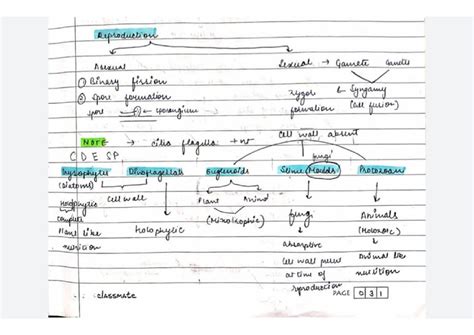 Reproduction
Asexual Sexual → Gamete Gamete
① Binary fission
② Spore formation zygos Syngamy
spore sporangium formation (Cell fusion)
NOTE → cilia flagella → +nt
Cell wall absent
C D E S P
fungi
Crysophytes Dinoflagellats Euglenoids Slime Moulds Protozoans
(diatoms)
Holophytic Cell wall Plant Animal fungi Animals
complete (Mixotrophic) (Holozoic)
Plant like holophytic absorptive Animal like
nutrition Cell wall nutrition
at time of
reproduction
classmate
PAGE 0 3 1